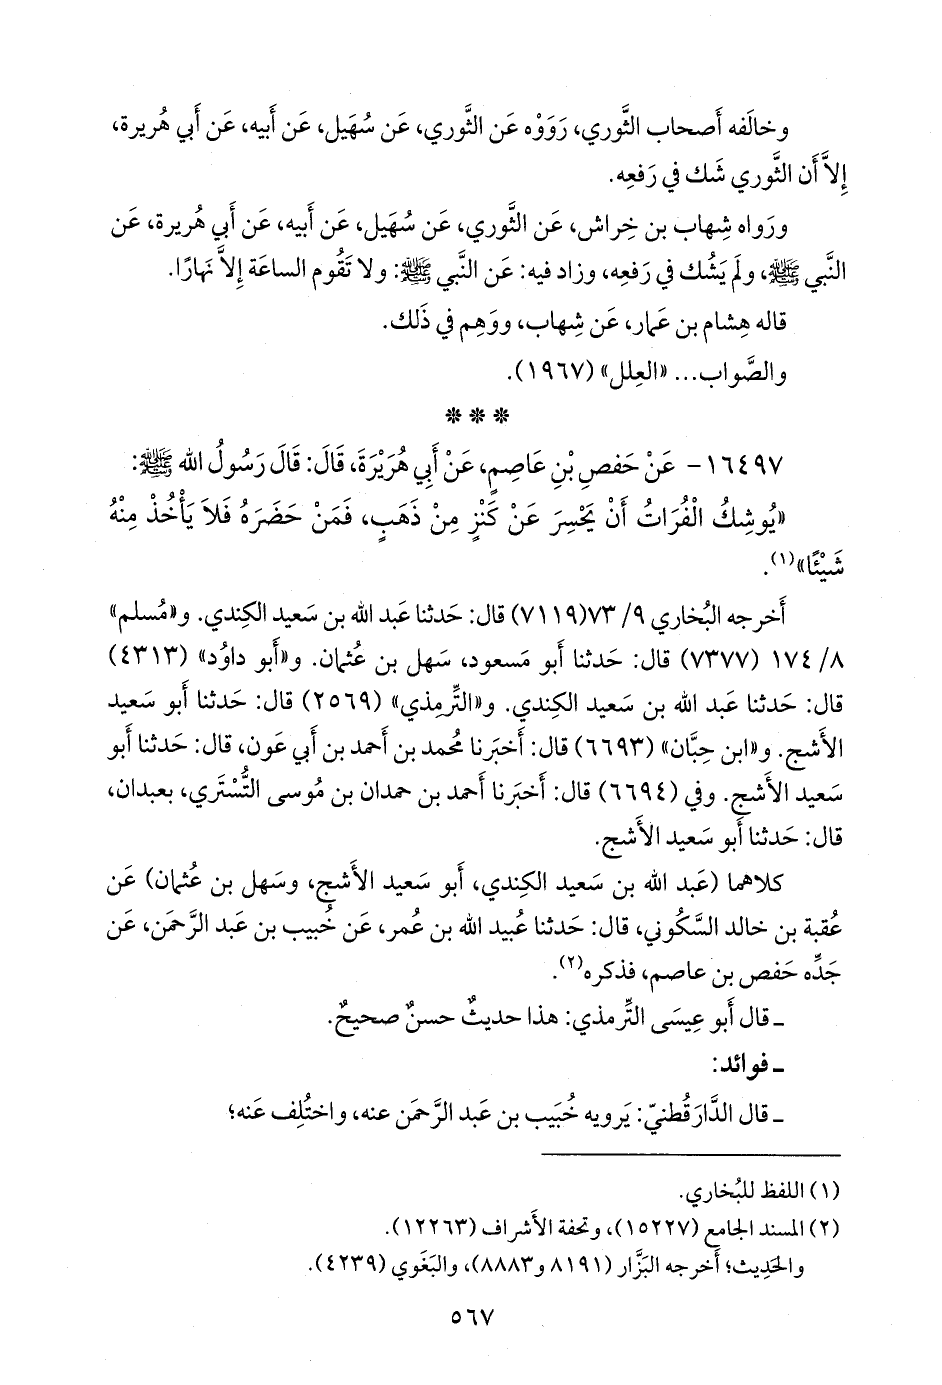 وخالَفه أَصحاب الثَّوري، رَوَوْه عَن الثَّوري، عَن سُهَيل، عَن أَبيه، عَن أَبي هُريرة،
إِلاَّ أَن الثَّوري شَك في رَفعِه.
ورَواه شِهاب بن خِراش، عَن الثَّوري، عَن سُهَيل، عَن أَبيه، عَن أَبي هُريرة، عَن
النَّبي ﷺ، ولَم يَشُك في رَفعِه، وزاد فيه: عَن النَّبي ﷺ: ولا تَقُوم الساعَة إِلاَّ نهارًا.
قاله هِشام بن عَمار، عَن شِهاب، ووَهِم في ذَلك.
والصَّواب... «العِلل» (١٩٦٧).
* * *
١٦٤٩٧- عَنْ حَفصِ بْنِ عَاصِمٍ، عَنْ أَبِي هُرَيْرَةَ، قَالَ: قَالَ رَسُولُ الله ﷺ:
«يُوشِكُ الْفُرَاتُ أَنْ يَحْسِرَ عَنْ كَنْزٍ مِنْ ذَهَبٍ، فَمَنْ حَضَرَهُ فَلاَ يَأْخُذْ مِنْهُ
شَيْئًا»(١).
أَخرجه البُخاري ٩/ ٧٣(٧١١٩) قال: حَدثنا عَبد الله بن سَعيد الكِندي. و«مُسلم»
٨/ ١٧٤ (٧٣٧٧) قال: حَدثنا أَبو مَسعود، سَهل بن عُثمان. و«أَبو داوُد» (٤٣١٣)
قال: حَدثنا عَبد الله بن سَعيد الكِندي. و«التِّرمِذي» (٢٥٦٩) قال: حَدثنا أَبو سَعيد
الأَشج. و«ابن حِبَّان» (٦٦٩٣) قال: أَخبَرنا مُحمد بن أَحمد بن أَبي عَون، قال: حَدثنا أَبو
سَعيد الأَشج. وفي (٦٦٩٤) قال: أَخبَرنا أَحمد بن حمدان بن مُوسى التُّستَري، بعبدان،
قال: حَدثنا أَبو سَعيد الأَشج.
كلاهما (عَبد الله بن سَعيد الكِندي، أَبو سَعيد الأَشج، وسَهل بن عُثمان) عَن
عُقبة بن خالد السَّكُوني، قال: حَدثنا عُبيد الله بن عُمر، عَن خُبيب بن عَبد الرَّحمَن، عَن
جَدِّه حَفص بن عاصم، فذكره(٢).
ـ قال أَبو عِيسَى التِّرمذي: هذا حديثٌ حسنٌ صحيحٌ.
ـ فوائد:
ـ قال الدَّارَقُطنيّ: يَرويه خُبَيب بن عَبد الرَّحمَن عنه، واختُلِف عَنه؛
(١) اللفظ للبُخاري.
(٢) المسند الجامع (١٥٢٢٧)، وتحفة الأَشراف (١٢٢٦٣).
والحَدِيث؛ أَخرجه البَزَّار (٨١٩١ و٨٨٨٣)، والبَغَوي (٤٢٣٩).
٥٦٧